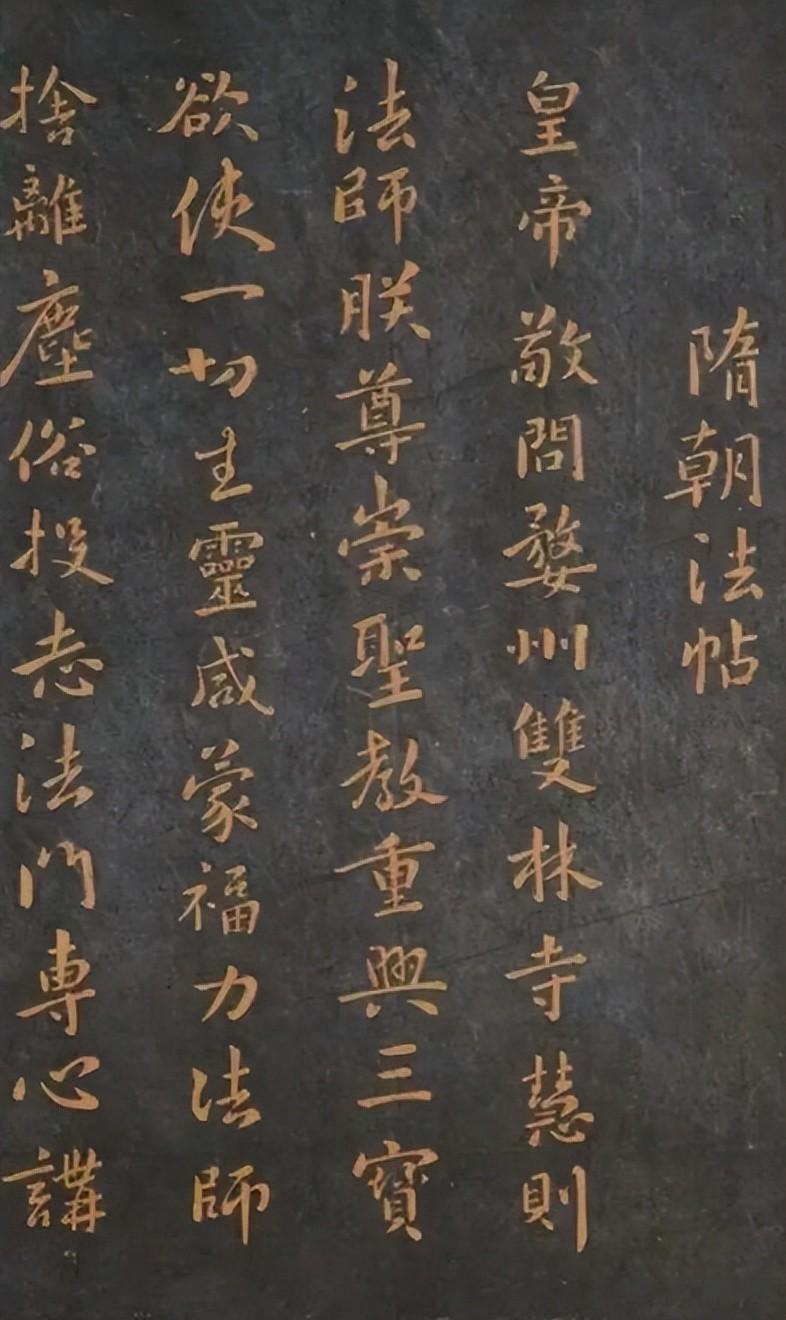 隋朝法帖
皇帝敬問婺州雙林寺慧則
法師朕尊崇聖教重興三寶
欲使一切生靈咸蒙福力法師
捨離塵俗投志法門專心講